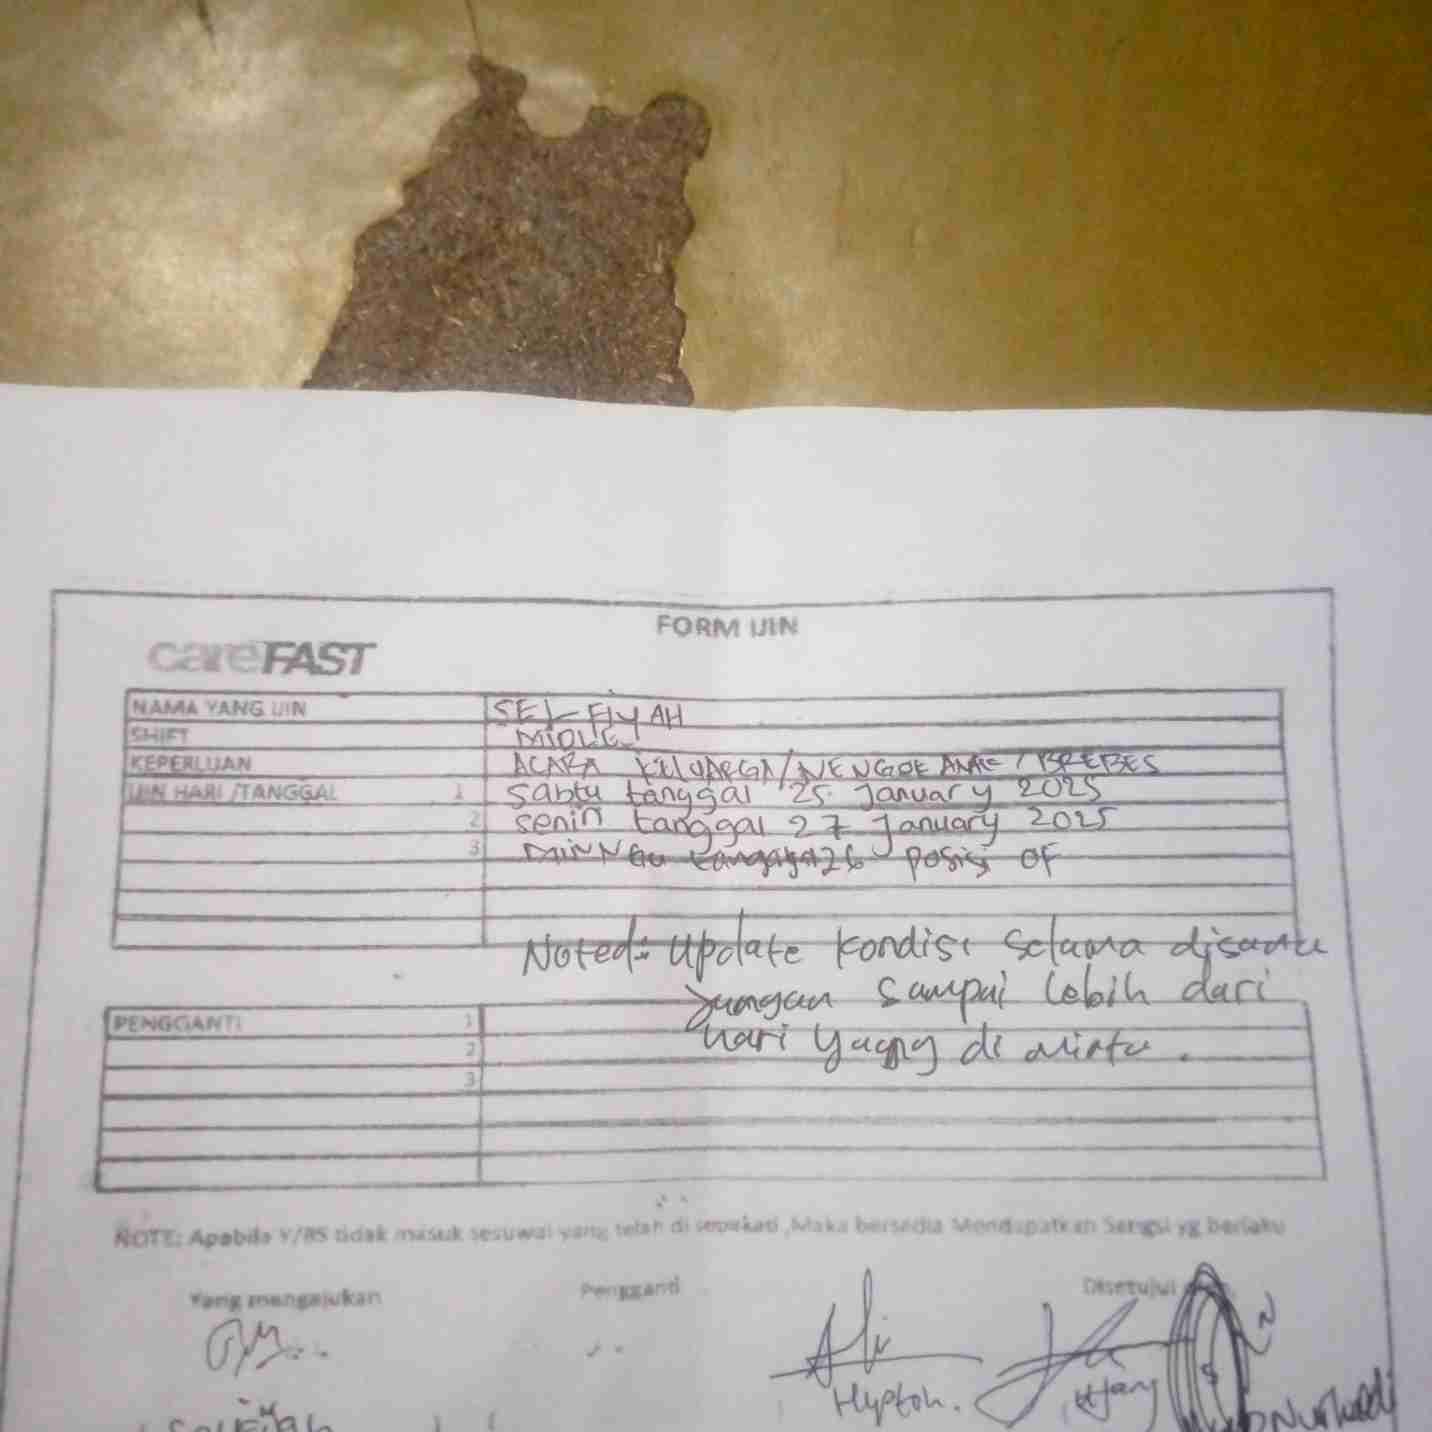 FORM IJIN
careFAST
NAMA YANG IJIN SELFIYAH
SHIFT MIDLE
KEPERLUAN ACARA KELUARGA/NENGOE ANAE/BREBES
IJIN HARI/TANGGAL 1 Sabtu tanggal 25 January 2025
2 senin tanggal 27 January 2025
3 MINNGu tanggal 26 posisi OF
Noted: Update kondisi selama disana
jangan sampai lebih dari
hari yang di minta.
PENGGANTI 1
2
3
NOTE: Apabila Y/BS tidak masuk sesuwai yang telah di sepakati ,Maka bersedia Mendapatkan Sangsi yg berlaku
Yang mengajukan Pengganti Disetujui
Ali
Hypton. Ujang Nurhadi